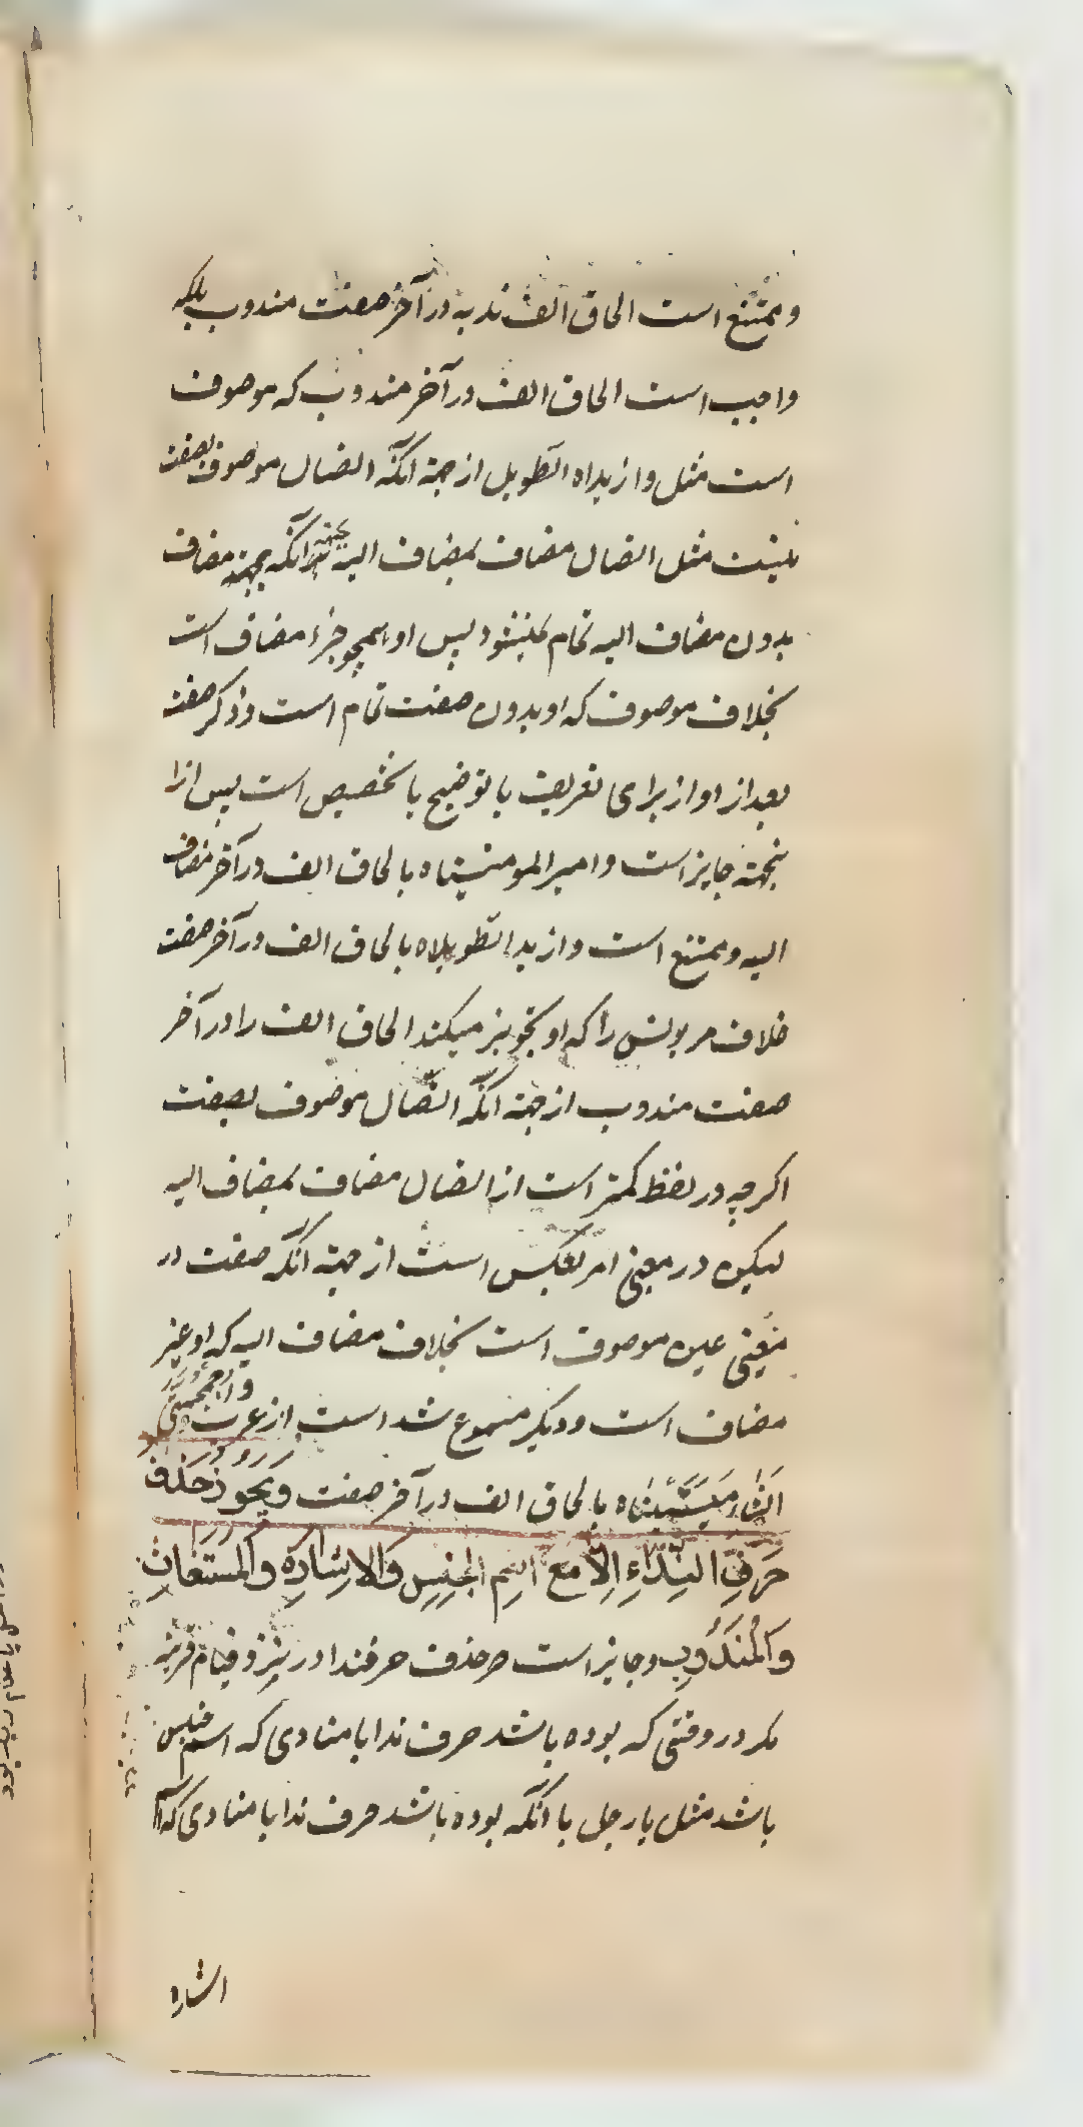 و ممتنع است الحاق الف ندبه در آخر صفت مندوب بلکه
واجب است الحاق الف در آخر مندوب که موصوف
است مثل وازیداه الطّویل از جهة آنکه اتصال موصوف بصفت
نیست مثل اتصال مضاف بمضاف الیه آنکه بجهة مضاف
بدون مضاف الیه تمام نمیشود پس او همچو جزء مضاف است
بخلاف موصوف که او بدون صفت تمام است و ذکر صفت
بعد از او از برای تعریف یا توضیح یا تخصیص است پس ازا
ینجهة جایز است وا امیر المومنیناه بالحاق الف در آخر مضاف
الیه و ممتنع است وازید الطّویلاه بالحاق الف در آخر صفت
خلاف مر یونس را که او تجویز میکند الحاق الف را در آخر
صفت مندوب از جهة آنکه اتصال موصوف بصفت
اکرچه در لفظ کمتر است از اتصال مضاف بمضاف الیه
لیکن در معنی امر بعکس است از جهة آنکه صفت در
معنی عین موصوف است بخلاف مضاف الیه که او غیر
مضاف است و دیکر مسموع شد است از عرب واجمجمتی
الشامیتیناه بالحاق الف در آخر صفت وَیَجُوزُ حَذْفُ
حَرْفِ النِّدَاءِ اِلَّا مَعَ اسْمِ الجِنْسِ وَالاِشَارَةِ وَالمُسْتَغَاثِ
وَالمَنْدُوبِ و جایز است حذف حرف ندا در نزد قیام قرینه
مکر در وقتی که بوده باشد حرف ندا با منادی که اسم جنس
باشد مثل یا رجل یا آنکه بوده باشد حرف ندا با منادی که اسم
اشاره